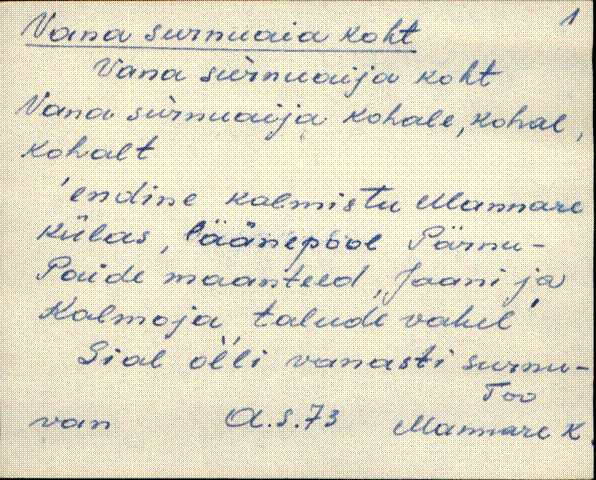 1
Vana surnuaia koht
Vana sùrnuaija koht
Vana sùrnuaija kohale, kohal,
kohalt
'endine kalmistu Mannare
külas, läänepool Pärnu-
Paide maanteed, Jaani ja
Kalmoja talude vahel'
Sial òlli vanasti surnu-
Too
van A.S.73 Mannare k.